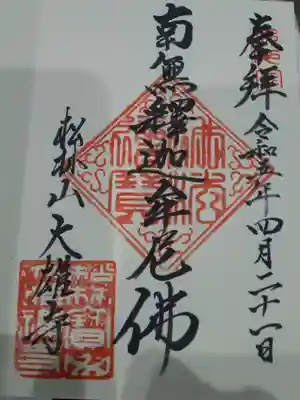 奉拝 令和五年四月二十一日
南無釋迦牟尼佛
松林山 大雄寺